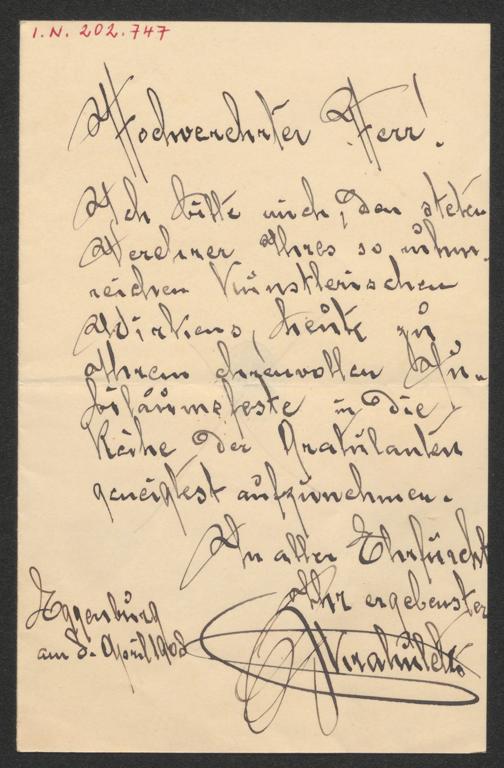 I.N. 202.747
Hochverehrter Herr!
Ich bitte mich, den steten
Verehrer Ihres so ruhm-
reichen künstlerischen
Wirkens, heute zu
Ihrem ehrenvollen Ju-
biläumsfeste in die
Reihe der Gratulanten
geneigtest aufzunehmen.
In aller Ehrfurcht
Ihr ergebenster
Eggenburg
am 8. April 1908